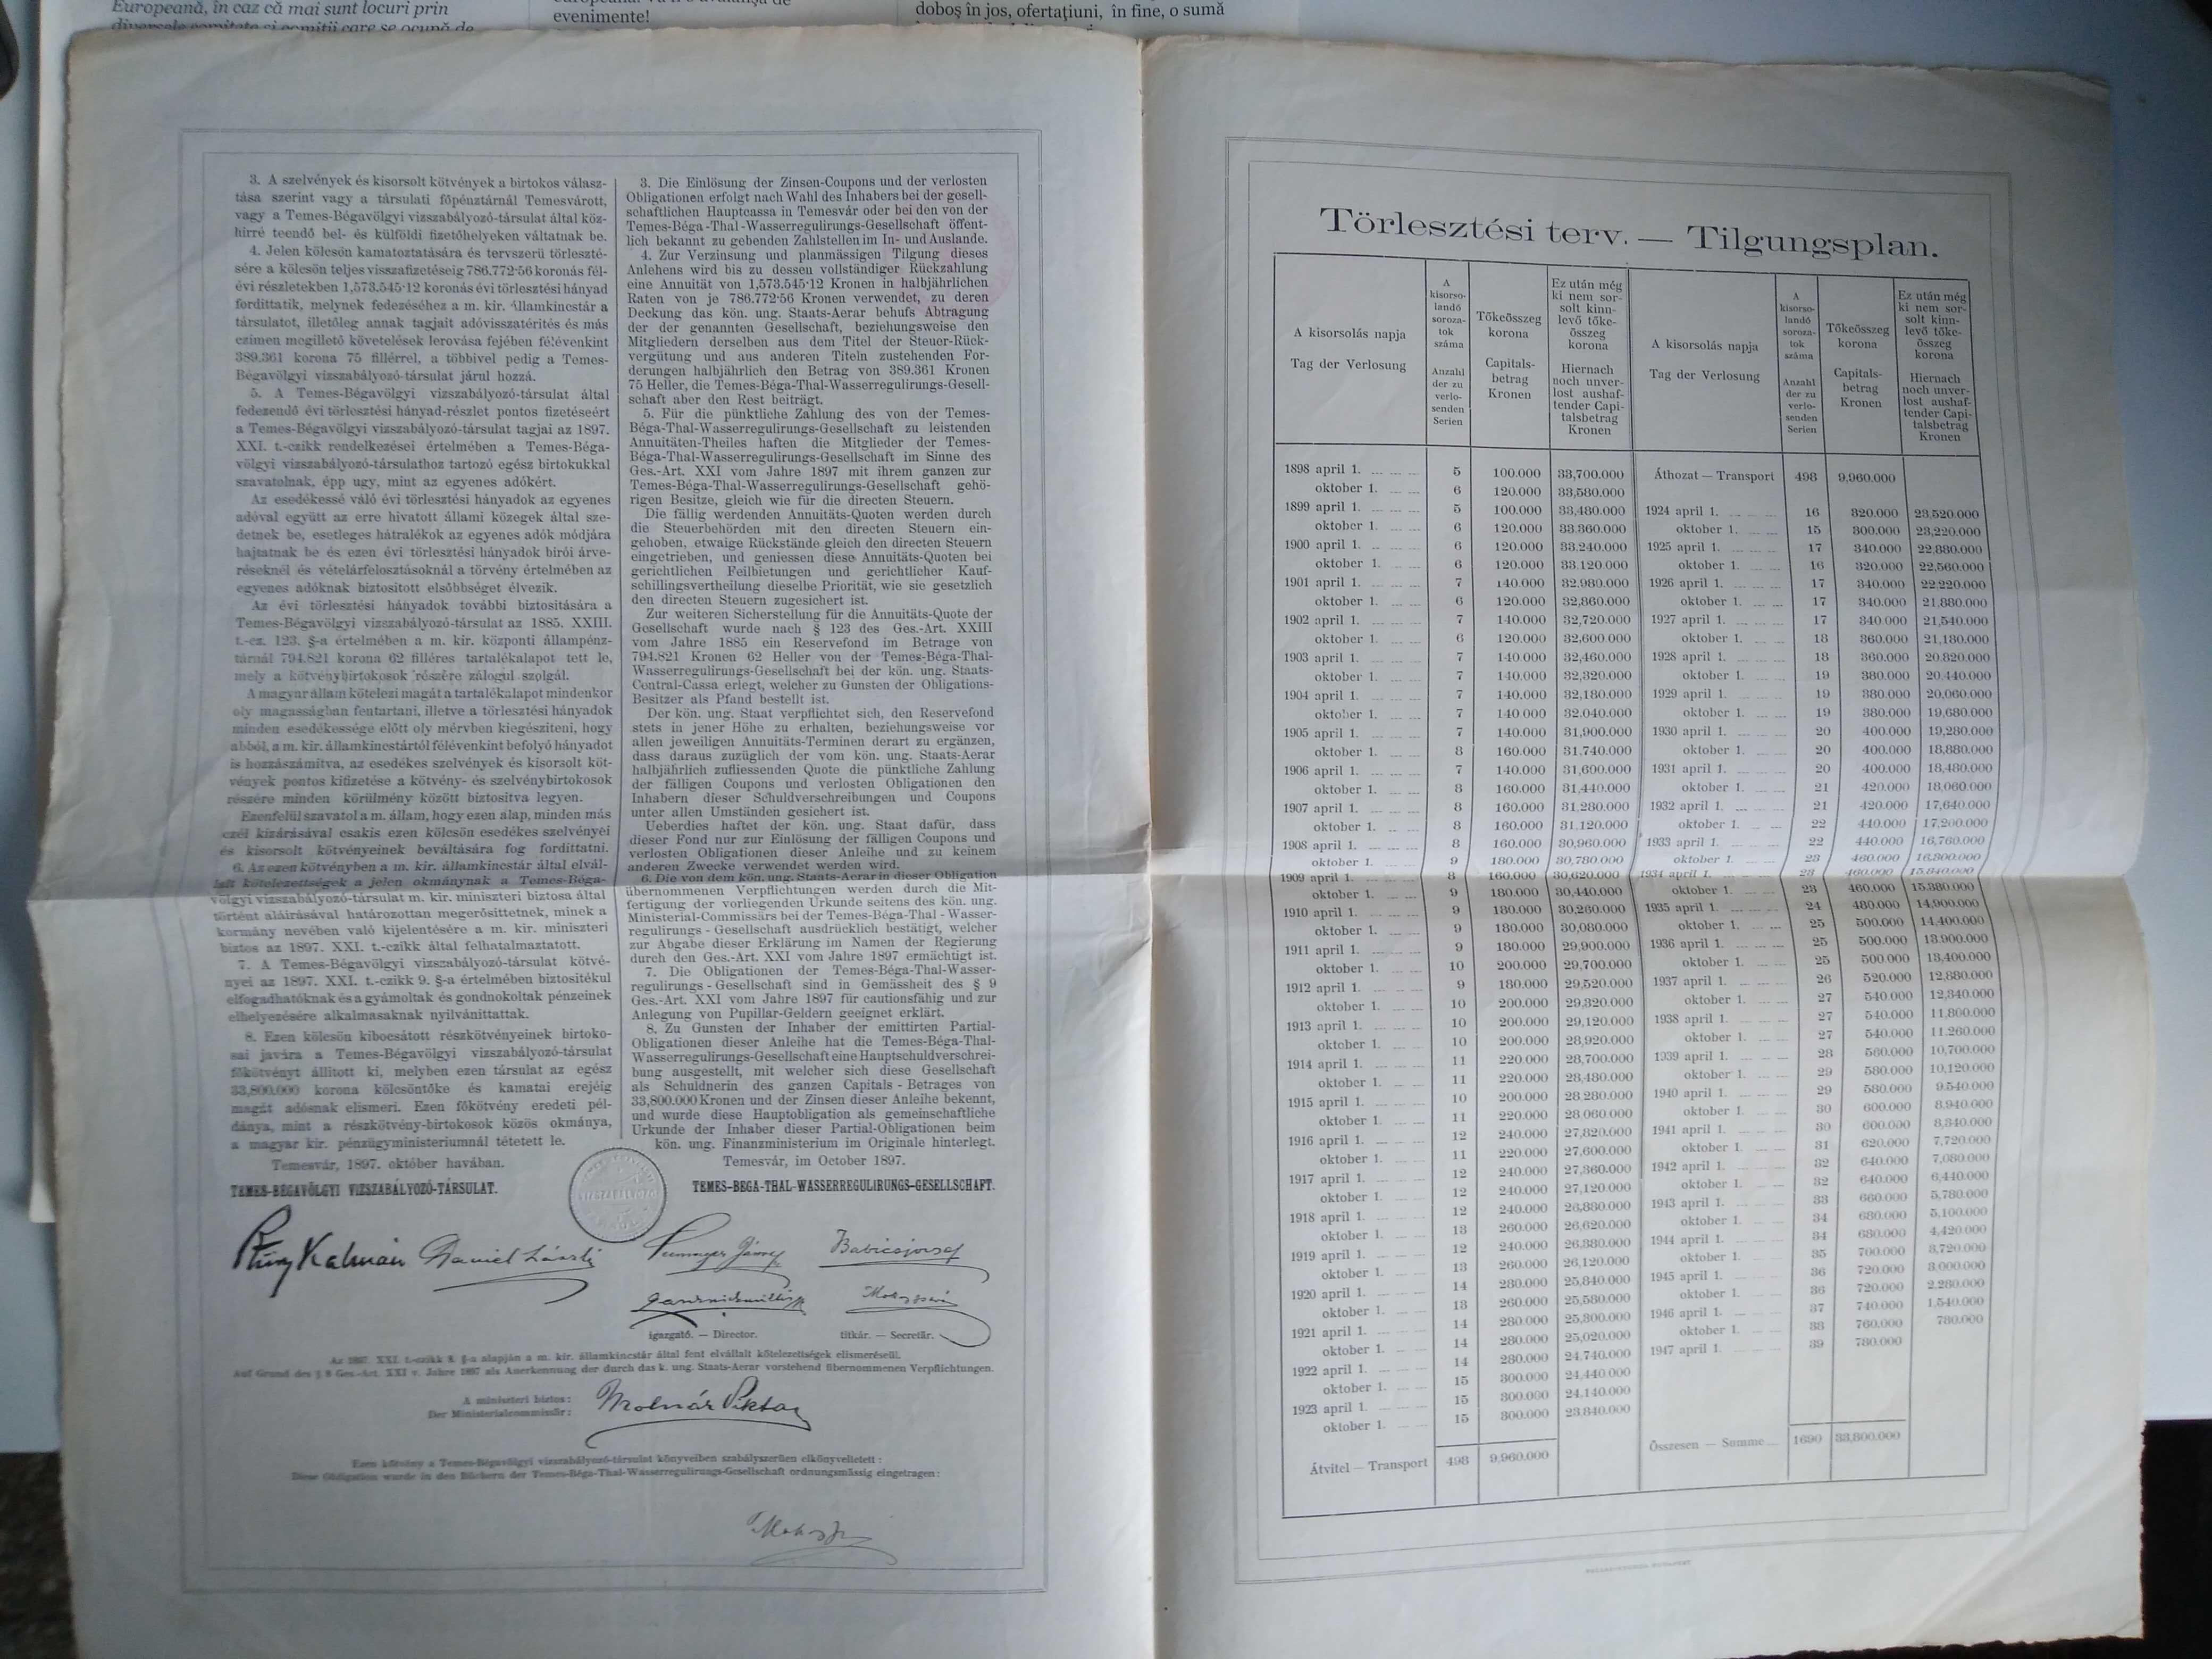 Europeană, în caz că mai sunt locuri prin
evenimente!
doboș în jos, ofertațiuni, în fine, o sumă
3. A szelvények és kisorsolt kötvények a birtokos válasz-
tása szerint vagy a társulati főpénztárnál Temesvárott,
vagy a Temes-Bégavölgyi vizszabályozó-társulat által köz-
hirré teendő bel- és külföldi fizetőhelyeken váltatnak be.
4. Jelen kölcsön kamatoztatására és tervszerü törleszté-
sére a kölcsön teljes visszafizetéseig 786.772·56 koronás fél-
évi részletekben 1,573.545·12 koronás évi törlesztési hányad
fordittatik, melynek fedezéséhez a m. kir. államkincstár a
társulatot, illetőleg annak tagjait adóvisszatérités és más
czimen megillető követelések lerovása fejében félévenkint
389.361 korona 75 fillérrel, a többivel pedig a Temes-
Bégavölgyi vizszabályozó-társulat járul hozzá.
5. A Temes-Bégavölgyi vizszabályozó-társulat által
fedezendő évi törlesztési hányad-részlet pontos fizetéseért
a Temes-Bégavölgyi vizszabályozó-társulat tagjai az 1897.
XXI. t.-czikk rendelkezései értelmében a Temes-Béga-
völgyi vizszabályozó-társulathoz tartozó egész birtokukkal
szavatolnak, épp ugy, mint az egyenes adókért.
Az esedékessé váló évi törlesztési hányadok az egyenes
adóval együtt az erre hivatott állami közegek által sze-
detnek be, esetleges hátralékok az egyenes adók módjára
hajtatnak be és ezen évi törlesztési hányadok birói árve-
réseknél és vételárfelosztásoknál a törvény értelmében az
egyenes adóknak biztositott elsőbbséget élvezik.
Az évi törlesztési hányadok további biztositására a
Temes-Bégavölgyi vizszabályozó-társulat az 1885. XXIII.
t.-cz. 123. §-a értelmében a m. kir. központi állampénz-
tárnál 794.821 korona 62 filléres tartalékalapot tett le,
mely a kötvénybirtokosok részére zálogul szolgál.
A magyar állam kötelezi magát a tartalékalapot mindenkor
oly magasságban fentartani, illetve a törlesztési hányadok
minden esedékessége előtt oly mérvben kiegésziteni, hogy
abból, a m. kir. államkincstártól félévenkint befolyó hányadot
is hozzászámitva, az esedékes szelvények és kisorsolt köt-
vények pontos kifizetése a kötvény- és szelvénybirtokosok
részére minden körülmény között biztositva legyen.
Ezenfelül szavatol a m. állam, hogy ezen alap, minden más
czél kizárásával csakis ezen kölcsön esedékes szelvényei
és kisorsolt kötvényeinek beváltására fog fordittatni.
6. Az ezen kötvényben a m. kir. államkincstár által elvál-
lalt kötelezettségek a jelen okmánynak a Temes-Béga-
völgyi vizszabályozó-társulat m. kir. miniszteri biztosa által
történt aláirásával határozottan megerősittetnek, minek a
kormány nevében való kijelentésére a m. kir. miniszteri
biztos az 1897. XXI. t.-czikk által felhatalmaztatott.
7. A Temes-Bégavölgyi vizszabályozó-társulat kötvé-
nyei az 1897. XXI. t.-czikk 9. §-a értelmében biztositékul
elfogadhatóknak és a gyámoltak és gondnokoltak pénzeinek
elhelyezésére alkalmasaknak nyilvánittattak.
8. Ezen kölcsön kibocsátott részkötvényeinek birtoko-
sai javára a Temes-Bégavölgyi vizszabályozó-társulat
főkötvényt állitott ki, melyben ezen társulat az egész
33,800.000 korona kölcsöntőke és kamatai erejéig
magát adósnak elismeri. Ezen főkötvény eredeti pél-
dánya, mint a részkötvény-birtokosok közös okmánya,
a magyar kir. pénzügyministeriumnál tétetett le.
Temesvár, 1897. október havában.
TEMES-BÉGAVÖLGYI VIZSZABÁLYOZÓ-TÁRSULAT.
3. Die Einlösung der Zinsen-Coupons und der verlosten
Obligationen erfolgt nach Wahl des Inhabers bei der gesell-
schaftlichen Hauptcassa in Temesvár oder bei den von der
Temes-Béga-Thal-Wasserregulirungs-Gesellschaft öffent-
lich bekannt zu gebenden Zahlstellen im In- und Auslande.
4. Zur Verzinsung und planmässigen Tilgung dieses
Anlehens wird bis zu dessen vollständiger Rückzahlung
eine Annuität von 1,573.545·12 Kronen in halbjährlichen
Raten von je 786.772·56 Kronen verwendet, zu deren
Deckung das kön. ung. Staats-Aerar behufs Abtragung
der der genannten Gesellschaft, beziehungsweise den
Mitgliedern derselben aus dem Titel der Steuer-Rück-
vergütung und aus anderen Titeln zustehenden For-
derungen halbjährlich den Betrag von 389.361 Kronen
75 Heller, die Temes-Béga-Thal-Wasserregulirungs-Gesell-
schaft aber den Rest beiträgt.
5. Für die pünktliche Zahlung des von der Temes-
Béga-Thal-Wasserregulirungs-Gesellschaft zu leistenden
Annuitäten-Theiles haften die Mitglieder der Temes-
Béga-Thal-Wasserregulirungs-Gesellschaft im Sinne des
Ges.-Art. XXI vom Jahre 1897 mit ihrem ganzen zur
Temes-Béga-Thal-Wasserregulirungs-Gesellschaft gehö-
rigen Besitze, gleich wie für die directen Steuern.
Die fällig werdenden Annuitäts-Quoten werden durch
die Steuerbehörden mit den directen Steuern ein-
gehoben, etwaige Rückstände gleich den directen Steuern
eingetrieben, und geniessen diese Annuitäts-Quoten bei
gerichtlichen Feilbietungen und gerichtlicher Kauf-
schillingsvertheilung dieselbe Priorität, wie sie gesetzlich
den directen Steuern zugesichert ist.
Zur weiteren Sicherstellung für die Annuitäts-Quote der
Gesellschaft wurde nach § 123 des Ges.-Art. XXIII
vom Jahre 1885 ein Reservefond im Betrage von
794.821 Kronen 62 Heller von der Temes-Béga-Thal-
Wasserregulirungs-Gesellschaft bei der kön. ung. Staats-
Central-Cassa erlegt, welcher zu Gunsten der Obligations-
Besitzer als Pfand bestellt ist.
Der kön. ung. Staat verpflichtet sich, den Reservefond
stets in jener Höhe zu erhalten, beziehungsweise vor
allen jeweiligen Annuitäts-Terminen derart zu ergänzen,
dass daraus zuzüglich der vom kön. ung. Staats-Aerar
halbjährlich zufliessenden Quote die pünktliche Zahlung
der fälligen Coupons und verlosten Obligationen den
Inhabern dieser Schuldverschreibungen und Coupons
unter allen Umständen gesichert ist.
Ueberdies haftet der kön. ung. Staat dafür, dass
dieser Fond nur zur Einlösung der fälligen Coupons und
verlosten Obligationen dieser Anleihe und zu keinem
anderen Zwecke verwendet werden wird.
6. Die von dem kön. ung. Staats-Aerar in dieser Obligation
übernommenen Verpflichtungen werden durch die Mit-
fertigung der vorliegenden Urkunde seitens des kön. ung.
Ministerial-Commissärs bei der Temes-Béga-Thal-Wasser-
regulirungs-Gesellschaft ausdrücklich bestätigt, welcher
zur Abgabe dieser Erklärung im Namen der Regierung
durch den Ges.-Art. XXI vom Jahre 1897 ermächtigt ist.
7. Die Obligationen der Temes-Béga-Thal-Wasser-
regulirungs-Gesellschaft sind in Gemässheit des § 9
Ges.-Art. XXI vom Jahre 1897 für cautionsfähig und zur
Anlegung von Pupillar-Geldern geeignet erklärt.
8. Zu Gunsten der Inhaber der emittirten Partial-
Obligationen dieser Anleihe hat die Temes-Béga-Thal-
Wasserregulirungs-Gesellschaft eine Hauptschuldverschrei-
bung ausgestellt, mit welcher sich diese Gesellschaft
als Schuldnerin des ganzen Capitals-Betrages von
33,800.000 Kronen und der Zinsen dieser Anleihe bekennt,
und wurde diese Hauptobligation als gemeinschaftliche
Urkunde der Inhaber dieser Partial-Obligationen beim
kön. ung. Finanzministerium im Originale hinterlegt.
Temesvár, im October 1897.
TEMES-BEGA-THAL-WASSERREGULIRUNGS-GESELLSCHAFT.
Kálmán Daniel László
igazgató. — Director. titkár. — Secretär.
Az 1897. XXI. t.-czikk 8. §-a alapján a m. kir. államkincstár által fent elvállalt kötelezettségek elismeréseül.
Auf Grund des § 8 Ges.-Art. XXI v. Jahre 1897 als Anerkennung der durch das k. ung. Staats-Aerar vorstehend übernommenen Verpflichtungen.
A miniszteri biztos:
Der Ministerialcommissär:
Molnár Viktor
Ezen kötvény a Temes-Bégavölgyi vizszabályozó-társulat könyveiben szabályszerüen elkönyveltetett:
Diese Obligation wurde in den Büchern der Temes-Béga-Thal-Wasserregulirungs-Gesellschaft ordnungsmässig eingetragen:
Törlesztési terv. — Tilgungsplan.
A kisorsolás napja
Tag der Verlosung
A kisorso-
landó
soroza-
tok
száma
Anzahl
der zu
verlo-
senden
Serien
Tőkeösszeg
korona
Capitals-
betrag
Kronen
Ez után még
ki nem sor-
solt kinn-
levő tőke-
összeg
korona
Hiernach
noch unver-
lost aushaf-
tender Capi-
talsbetrag
Kronen
A kisorsolás napja
Tag der Verlosung
A
kisorso-
landó
soroza-
tok
száma
Anzahl
der zu
verlo-
senden
Serien
Tőkeösszeg
korona
Capitals-
betrag
Kronen
Ez után még
ki nem sor-
solt kinn-
levő tőke-
összeg
korona
Hiernach
noch unver-
lost aushaf-
tender Capi-
talsbetrag
Kronen
1898 april 1. 5 100.000 33,700.000
oktober 1. 6 120.000 33,580.000
1899 april 1. 5 100.000 33,480.000
oktober 1. 6 120.000 33.360.000
1900 april 1. 6 120.000 33.240.000
oktober 1. 6 120.000 33.120.000
1901 april 1. 7 140.000 32.980.000
oktober 1. 6 120.000 32,860.000
1902 april 1. 7 140.000 32,720.000
oktober 1. 6 120.000 32,600.000
1903 april 1. 7 140.000 32,460.000
oktober 1. 7 140.000 32,320.000
1904 april 1. 7 140.000 32,180.000
oktober 1. 7 140.000 32.040.000
1905 april 1. 7 140.000 31,900.000
oktober 1. 8 160.000 31.740.000
1906 april 1. 7 140.000 31,600.000
oktober 1. 8 160.000 31,440.000
1907 april 1. 8 160.000 31.280.000
oktober 1. 8 160.000 31.120.000
1908 april 1. 8 160.000 30,960.000
oktober 1. 9 180.000 30,780.000
1909 april 1. 8 160.000 30,620.000
oktober 1. 9 180.000 30,440.000
1910 april 1. 9 180.000 30,260.000
oktober 1. 9 180.000 30,080.000
1911 april 1. 9 180.000 29,900.000
oktober 1. 10 200.000 29,700.000
1912 april 1. 9 180.000 29,520.000
oktober 1. 10 200.000 29,320.000
1913 april 1. 10 200.000 29,120.000
oktober 1. 10 200.000 28,920.000
1914 april 1. 11 220.000 28,700.000
oktober 1. 11 220.000 28,480.000
1915 april 1. 10 200.000 28 280.000
oktober 1. 11 220.000 28 060.000
1916 april 1. 12 240.000 27,820.000
oktober 1. 11 220.000 27,600.000
1917 april 1. 12 240.000 27,360.000
oktober 1. 12 240.000 27,120.000
1918 april 1. 12 240.000 26,880.000
oktober 1. 13 260.000 26,620.000
1919 april 1. 12 240.000 26,380.000
oktober 1. 13 260.000 26,120.000
1920 april 1. 14 280.000 25,840.000
oktober 1. 13 260.000 25,580.000
1921 april 1. 14 280.000 25,300.000
oktober 1. 14 280.000 25,020.000
1922 april 1. 14 280.000 24.740.000
oktober 1. 15 300.000 24,440.000
1923 april 1. 15 300.000 24.140.000
oktober 1. 15 300.000 23.840.000
Átvitel — Transport 498 9,960.000
Áthozat — Transport 498 9,960.000
1924 april 1. 16 320.000 23,520.000
oktober 1. 15 300.000 23,220.000
1925 april 1. 17 340.000 22,880.000
oktober 1. 16 320.000 22,560.000
1926 april 1. 17 340.000 22,220.000
oktober 1. 17 340.000 21,880.000
1927 april 1. 17 340.000 21,540.000
oktober 1. 18 360.000 21,180.000
1928 april 1. 18 360.000 20.820.000
oktober 1. 19 380.000 20.440.000
1929 april 1. 19 380.000 20,060.000
oktober 1. 19 380.000 19,680.000
1930 april 1. 20 400.000 19,280.000
oktober 1. 20 400.000 18,880.000
1931 april 1. 20 400.000 18,480.000
oktober 1. 21 420.000 18,060.000
1932 april 1. 21 420.000 17,640.000
oktober 1. 22 440.000 17,200.000
1933 april 1. 22 440.000 16,760.000
oktober 1. 23 460.000 16,300.000
1934 april 1. 23 460.000 15,840.000
oktober 1. 23 460.000 15.380.000
1935 april 1. 24 480.000 14,900.000
oktober 1. 25 500.000 14.400.000
1936 april 1. 25 500.000 13.900.000
oktober 1. 25 500.000 13,400.000
1937 april 1. 26 520.000 12,880.000
oktober 1. 27 540.000 12,340.000
1938 april 1. 27 540.000 11,800.000
oktober 1. 27 540.000 11.260.000
1939 april 1. 28 560.000 10,700.000
oktober 1. 29 580.000 10,120.000
1940 april 1. 29 580.000 9.540.000
oktober 1. 30 600.000 8.940.000
1941 april 1. 30 600.000 8,340.000
oktober 1. 31 620.000 7,720.000
1942 april 1. 32 640.000 7,080.000
oktober 1. 32 640.000 6,440.000
1943 april 1. 33 660.000 5,780.000
oktober 1. 34 680.000 5,100.000
1944 april 1. 34 680.000 4,420.000
oktober 1. 35 700.000 3,720.000
1945 april 1. 36 720.000 3,000.000
oktober 1. 36 720.000 2,280.000
1946 april 1. 37 740.000 1,540.000
oktober 1. 38 760.000 780.000
1947 april 1. 39 780.000
Összesen — Summe 1690 33,800.000